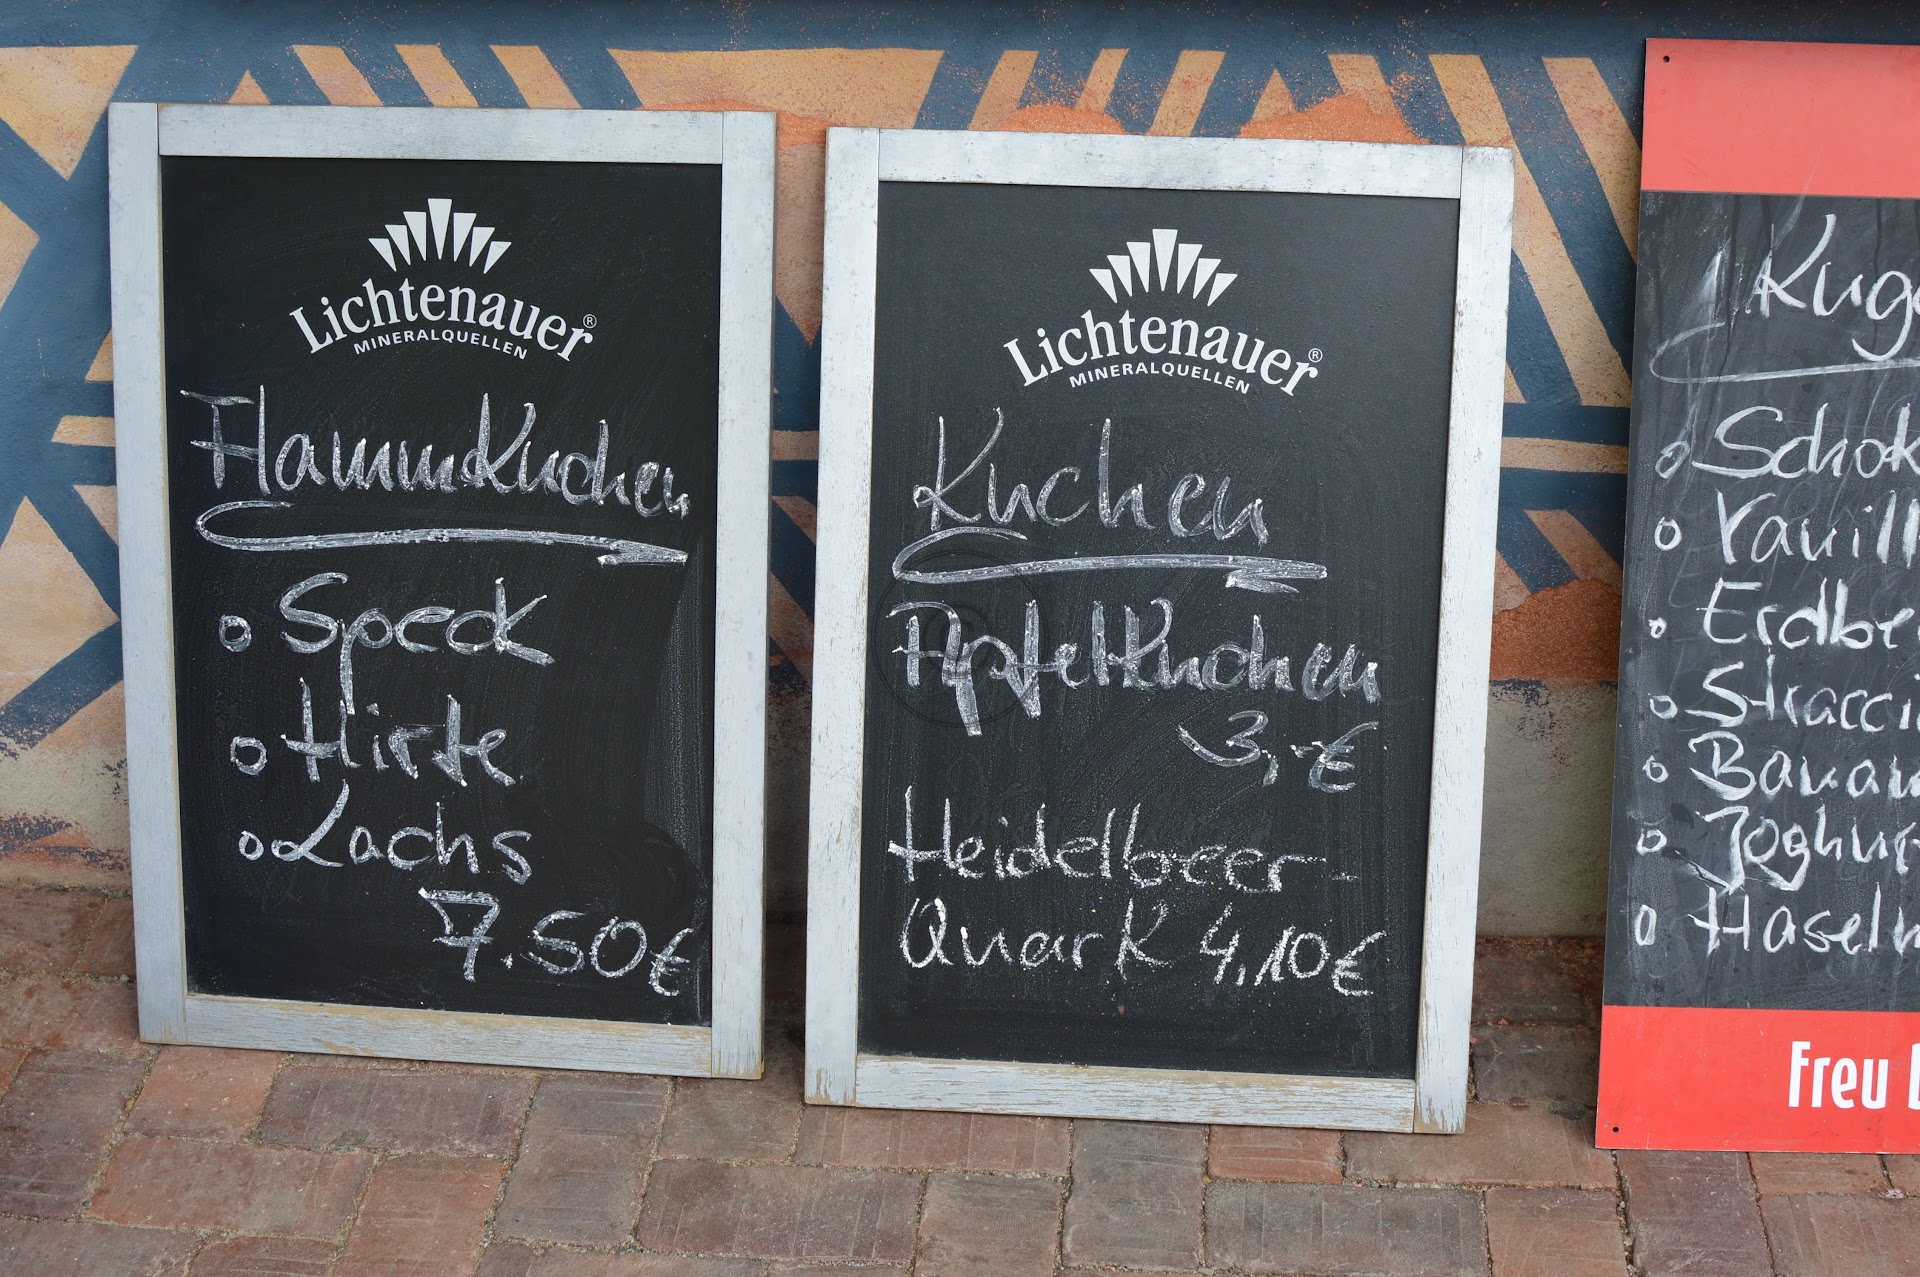 Lichtenauer®
MINERALQUELLEN
Flammkuchen
o Speck
o Hirte
o Lachs
7.50€
Lichtenauer®
MINERALQUELLEN
Kuchen
Apfelkuchen
3,-€
Heidelbeer-
Quark 4,10€
1 Kug
o Schok
o Vanill
o Erdbe
o Stracci
o Banan
o Joghur
o Haseln
Freu